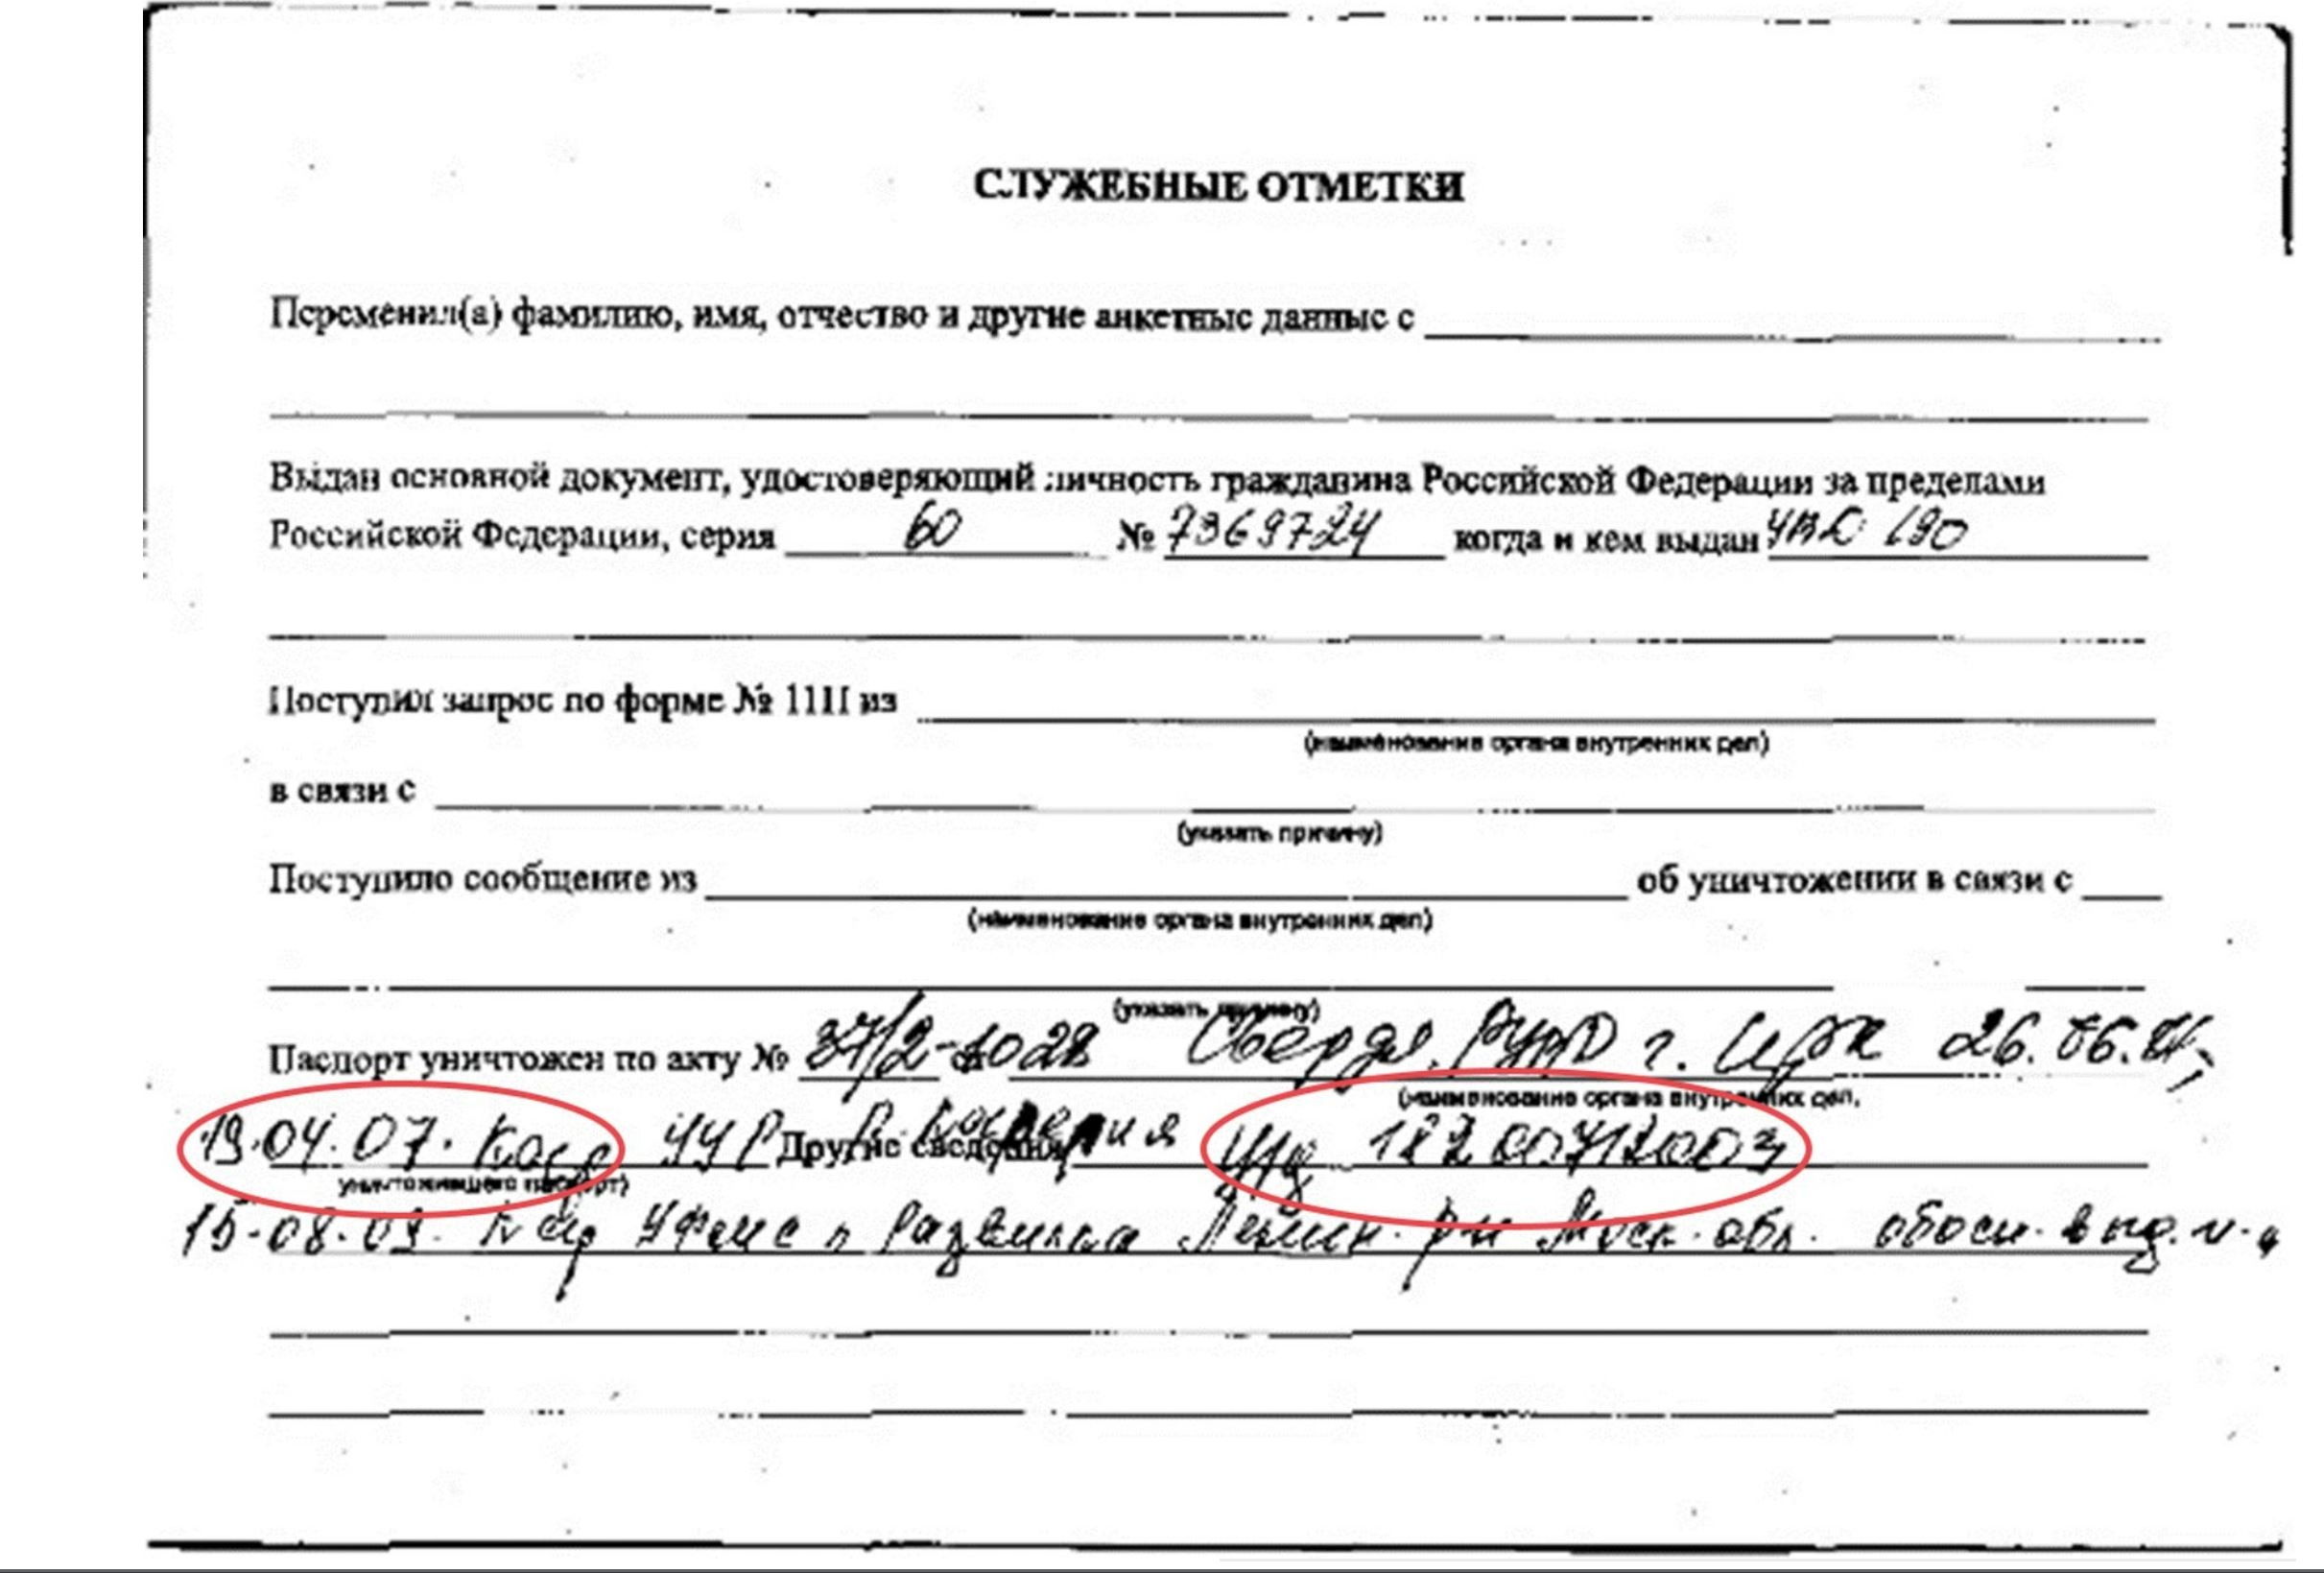 СЛУЖЕБНЫЕ ОТМЕТКИ
Переменил(а) фамилию, имя, отчество и другие анкетные данные с
Выдан основной документ, удостоверяющий личность гражданина Российской Федерации за пределами
Российской Федерации, серия 60 № 7369724 когда и кем выдан УВД 190
Поступил запрос по форме № 11П из
(наименование органа внутренних дел)
в связи с
(указать причину)
Поступило сообщение из об уничтожении в связи с
(наименование органа внутренних дел)
(указать причину)
Паспорт уничтожен по акту № 37/2-1028 от Свердл. РУВД г. Ирк 26.06.
(наименование органа внутренних дел,
19.04.07. УУР Другие сведения у/д 18200712003
уничтожившего паспорт)
15.08.09. УФМС п Развилка Ленин. р-н Моск. обл. обосн. выд.